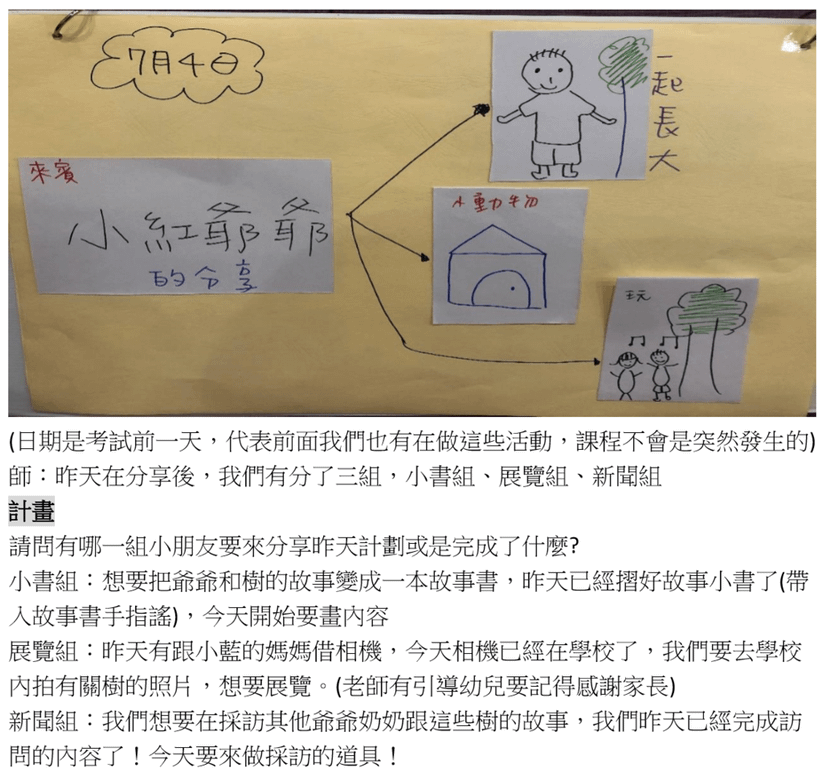 7月4日
來賓
小紅爺爺
的分享
一起長大
小動物
玩
(日期是考試前一天，代表前面我們也有在做這些活動，課程不會是突然發生的)
師：昨天在分享後，我們有分了三組，小書組、展覽組、新聞組
計畫
請問有哪一組小朋友要來分享昨天計劃或是完成了什麼?
小書組：想要把爺爺和樹的故事變成一本故事書，昨天已經摺好故事小書了(帶
入故事書手指謠)，今天開始要畫內容
展覽組：昨天有跟小藍的媽媽借相機，今天相機已經在學校了，我們要去學校
內拍有關樹的照片，想要展覽。(老師有引導幼兒要記得感謝家長)
新聞組：我們想要在採訪其他爺爺奶奶跟這些樹的故事，我們昨天已經完成訪
問的內容了！今天要來做採訪的道具！